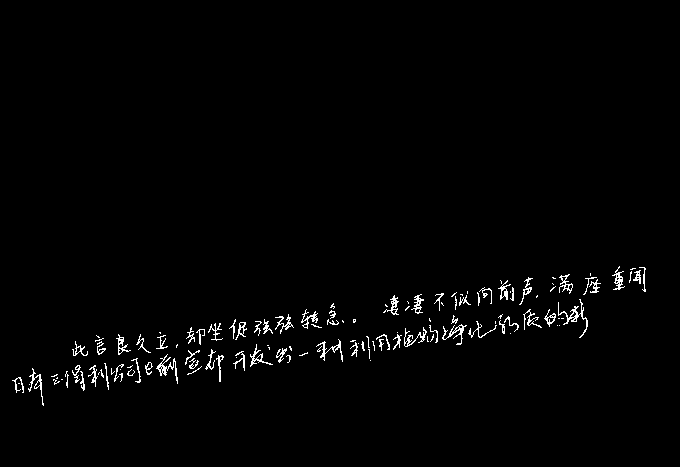 此言良久立,却坐促弦弦转急。 凄凄不似向前声,满座重闻
日本三得利公司日前宣布开发出一种利用植物净化水质的新